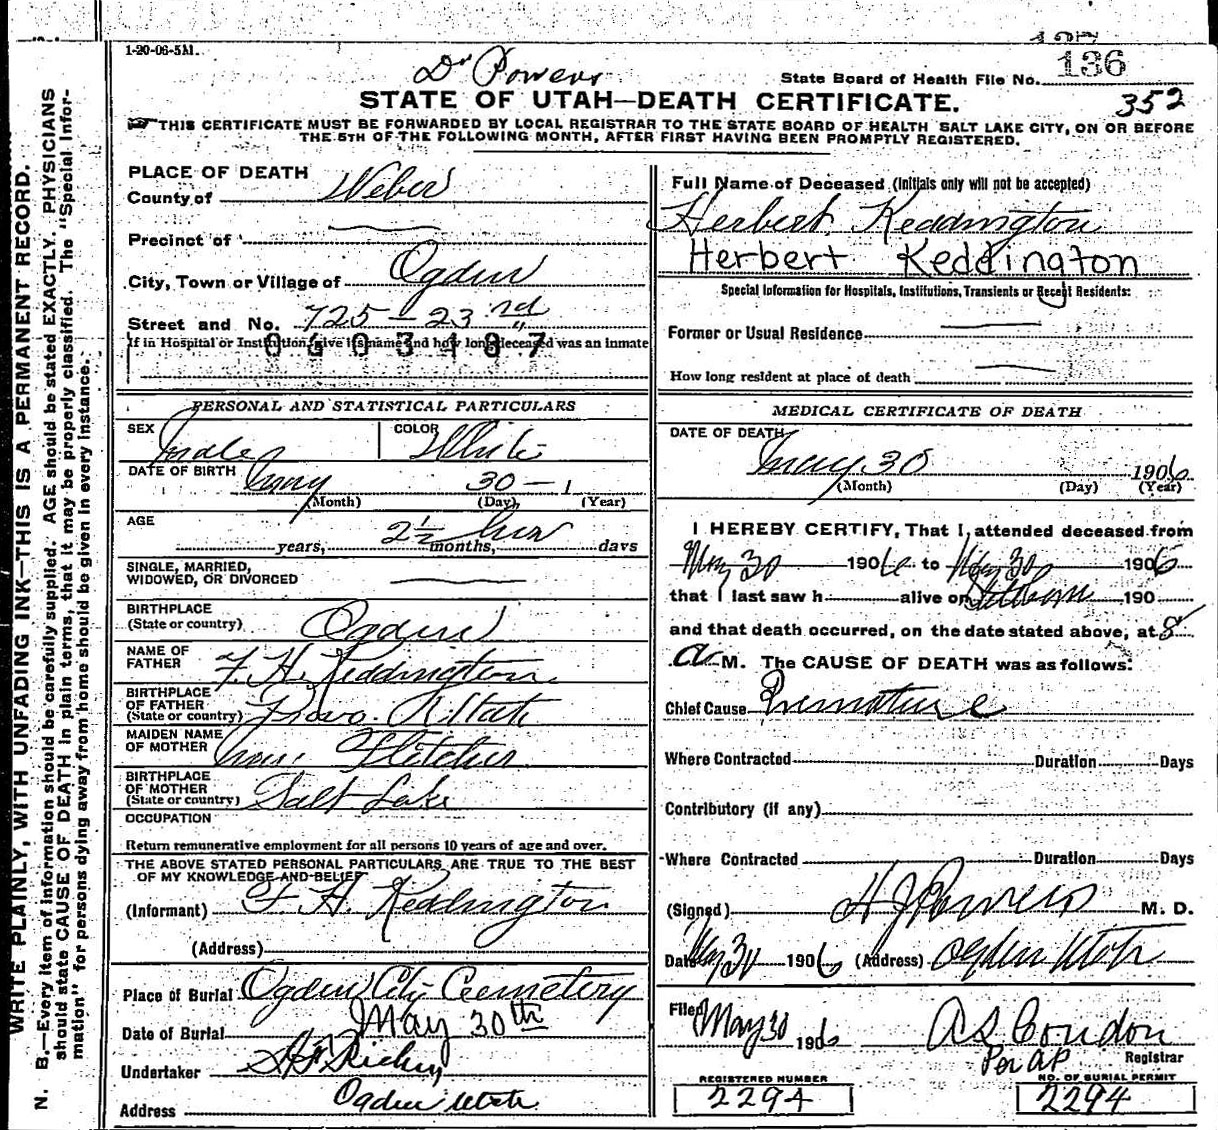 1-20-06-5M.
Dr Powers
State Board of Health File No. 136
352
STATE OF UTAH—DEATH CERTIFICATE.
THIS CERTIFICATE MUST BE FORWARDED BY LOCAL REGISTRAR TO THE STATE BOARD OF HEALTH SALT LAKE CITY, ON OR BEFORE
THE 5TH OF THE FOLLOWING MONTH, AFTER FIRST HAVING BEEN PROMPTLY REGISTERED.
WRITE PLAINLY, WITH UNFADING INK—THIS IS A PERMANENT RECORD.
N. B.—Every item of information should be carefully supplied. AGE should be stated EXACTLY. PHYSICIANS
should state CAUSE OF DEATH in plain terms, that it may be properly classified. The "Special Infor-
mation" for persons dying away from home should be given in every instance.
PLACE OF DEATH
County of Weber
Precinct of
City, Town or Village of Ogden
Street and No. 725 - 23rd
If in Hospital or Institution, give its name and how long deceased was an inmate
0603487
PERSONAL AND STATISTICAL PARTICULARS
SEX Male
COLOR White
DATE OF BIRTH May 30 - 1
(Month) (Day) (Year)
AGE
years, 2½ months, hrs days
SINGLE, MARRIED,
WIDOWED, OR DIVORCED
BIRTHPLACE
(State or country) Ogden
NAME OF
FATHER F. H. Keddington
BIRTHPLACE
OF FATHER
(State or country) Provo. Utah
MAIDEN NAME
OF MOTHER Fletcher
BIRTHPLACE
OF MOTHER
(State or country) Salt Lake
OCCUPATION
Return remunerative employment for all persons 10 years of age and over.
THE ABOVE STATED PERSONAL PARTICULARS ARE TRUE TO THE BEST
OF MY KNOWLEDGE AND BELIEF
(Informant) F. H. Keddington
(Address)
Place of Burial Ogden City Cemetery
Date of Burial May 30th
Undertaker
Address Ogden Utah
Full Name of Deceased (Initials only will not be accepted)
Herbert Keddington
Herbert Keddington
Special Information for Hospitals, Institutions, Transients or Recent Residents:
Former or Usual Residence
How long resident at place of death
MEDICAL CERTIFICATE OF DEATH
DATE OF DEATH
May 30 1906
(Month) (Day) (Year)
I HEREBY CERTIFY, That I attended deceased from
May 30 1906 to May 30 1906
that I last saw h alive on Stillborn 190
and that death occurred, on the date stated above, at 8
a M. The CAUSE OF DEATH was as follows:
Chief Cause Premature
Where Contracted Duration Days
Contributory (if any)
Where Contracted Duration Days
(Signed) H J Powers M. D.
Date May 30 1906 (Address) Ogden Utah
Filed May 30 1906 A S Condon
Per AP Registrar
REGISTERED NUMBER
2294
NO. OF BURIAL PERMIT
2294